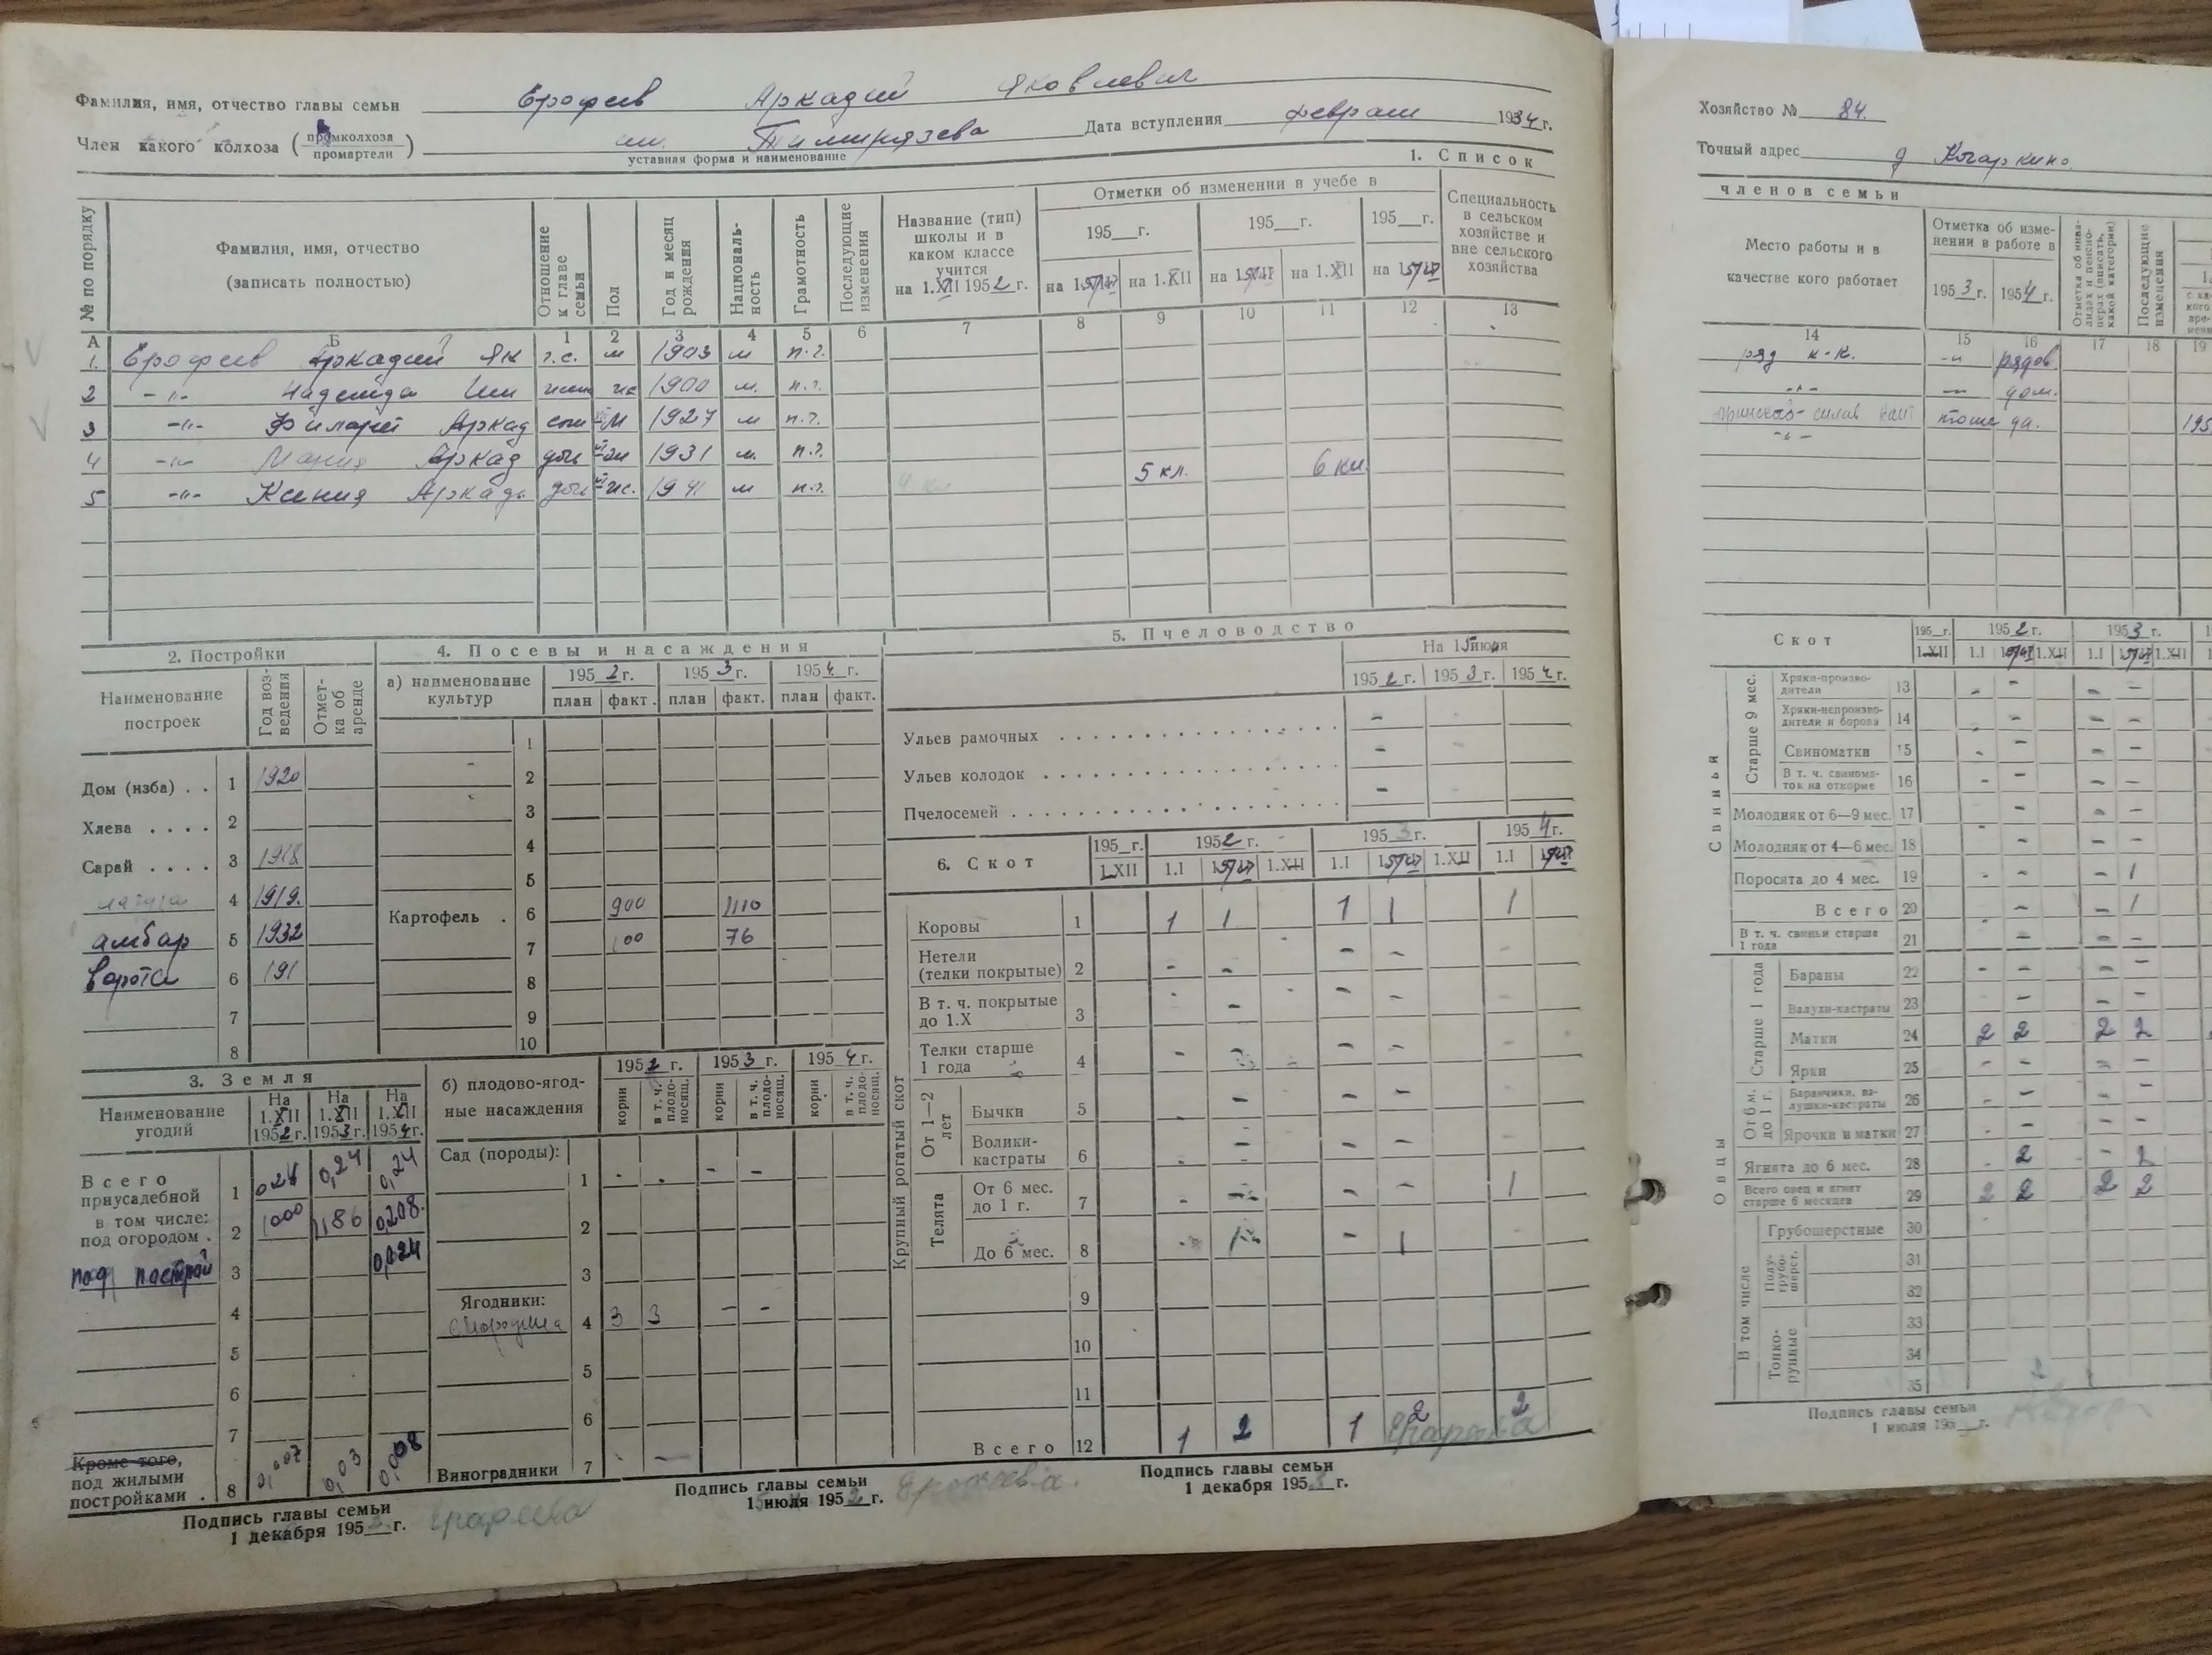 Фамилия, имя, отчество главы семьи Ерофеев Аркадий Яковлевич
Член какого колхоза (промколхоза промартели) им. Тимирязева Дата вступления феврал 1934 г.
уставная форма и наименование
1. Список
№ по порядку
Фамилия, имя, отчество (записать полностью)
Отношение к главе семьи
Пол
Год и месяц рождения
Националь-ность
Грамотность
Последующие изменения
Название (тип) школы и в каком классе учится на 1.XII 1952 г.
Отметки об изменении в учебе в
195__г. 195__г. 195__г.
на 1.XII на 1.XII
Специальность в сельском хозяйстве и вне сельского хозяйства
А Б 1 2 3 4 5 6 7 8 9 10 11 12 13
1. Ерофеев Аркадий Як г.с. м 1903 м п.г.
2 -"- Надежда 1900 м. п.г.
3 -"- Аркад сын м 1927 м п.г.
4 -"- Мария Аркад дочь 1931 м. п.г.
5 -"- Ксения Аркадь доч 1941 м п.г. 5 кл. 6 кл.
2. Постройки
Наименование построек
Год воз-ведения
Отмет-ка об аренде
Дом (изба) . . 1 1920
Хлева . . . . 2
Сарай . . . . 3 1918
4 1919.
амбар 5 1932
ворота 6 191
7
8
4. Посевы и насаждения
а) наименование культур
1952 г. 1953 г. 1954 г.
план факт. план факт. план факт.
1
2
3
4
5
Картофель . 6 900 1110
7 100 76
8
9
10
5. Пчеловодство
На 15 июня
1952 г. 1953 г. 1954 г.
Ульев рамочных -
Ульев колодок -
Пчелосемей -
3. Земля
Наименование угодий
На 1.XII 1952 г. На 1.XII 1953 г. На 1.XII 1954 г.
Всего приусадебной 1 0,24 0,24 0,24
в том числе: под огородом . 2 1000 1186 0,208.
под построй 3 0,024
4
5
6
7
Кроме того, под жилыми постройками . 8 0,007 0,03 0,008
Подпись главы семьи
1 декабря 195__г. Ерофеева
б) плодово-ягод-ные насаждения
1952 г. 1953 г. 1954 г.
корни в т. ч. плодо-носящ. корни в т. ч. плодо-носящ. корни в т. ч. плодо-носящ.
Сад (породы):
1 - - - -
2
3
Ягодники: смородина 4 3 3 - -
5
6
Виноградники 7
Подпись главы семьи
1 июля 1952 г. Ерофеева.
6. Скот
195_г. 1952 г. 1953 г. 1954 г.
1.XII 1.I 1.XII 1.I 1.XII 1.I
Крупный рогатый скот
Коровы 1 1 1 1 1 1
Нетели (телки покрытые) 2 - - - -
В т. ч. покрытые до 1.X 3 - - -
Телки старше 1 года 4 - - - -
От 1—2 лет
Бычки 5 - - -
Волики-кастраты 6 - - - -
Телята
От 6 мес. до 1 г. 7 - - - - 1
До 6 мес. 8 - 1 - 1
9
10
11
Всего 12 1 2 1 2 2
Подпись главы семьи
1 декабря 1953 г.
Хозяйство № 84.
Точный адрес д Кочаркино.
членов семьи
Место работы и в качестве кого работает
Отметка об изме-нении в работе в
1953 г. 1954 г.
Отметка об инва-лидах и пенсио-нерах (вписать, какой категории)
Последующие изменения
14 15 16 17 18 19
ряд к-к. -"- рядов.
-"- дом.
-"-
Скот
195_г. 1952 г. 1953 г.
1.XII 1.I 1.XII 1.I 1.XII
Свиньи
Старше 9 мес.
Хряки-произво-дители 13 - - - -
Хряки-непроизво-дители и борова 14 - - -
Свиноматки 15 - - - -
В т. ч. свинома-ток на откорме 16 - - - -
Молодняк от 6—9 мес. 17 - - -
Молодняк от 4—6 мес. 18 - - -
Поросята до 4 мес. 19 - - - 1
Всего 20 - - 1
В т. ч. свиньи старше 1 года 21 - - -
Овцы
Старше 1 года
Бараны 22 - - - -
Валухи-кастраты 23 - - -
Матки 24 2 2 2 2
Ярки 25 - - - -
От 6 м. до 1 г.
Баранчики, ва-лушки-кастраты 26 - - -
Ярочки и матки 27 - - - -
Ягнята до 6 мес. 28 2 - 2
Всего овец и ягнят старше 6 месяцев 29 2 2 2 2
В том числе
Грубошерстные 30
Полу-грубо-шерст. 31
32
Тонко-рунные 33
34
35
Подпись главы семьи
1 июля 195__г.